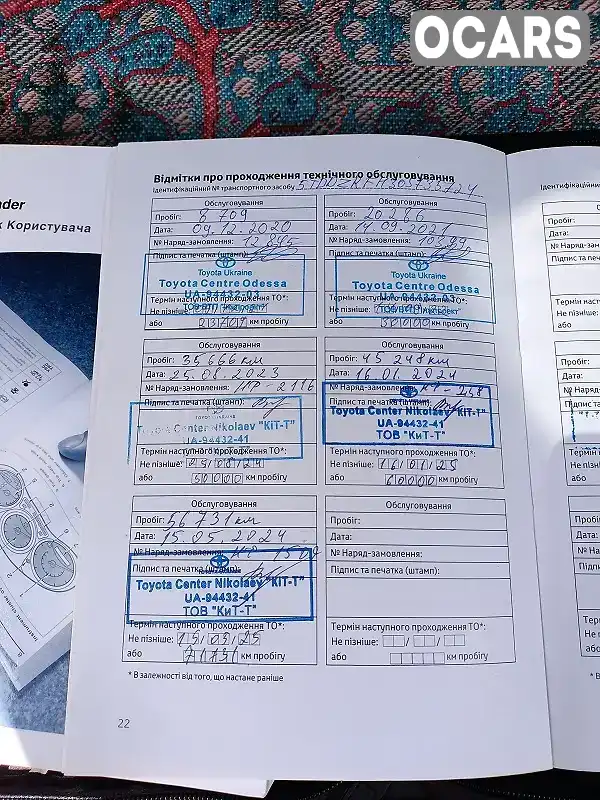 OCARS
nder
к Користувача
Відмітки про проходження технічного обслуговування
Ідентифікаційний № транспортного засобу
Обслуговування
Пробіг: 8 709
Дата: 09.12.2020
№ Наряд-замовлення: 12 845
Підпис та печатка (штамп):
Toyota Ukraine
Toyota Centre Odessa
UA-94432-03
Термін наступного проходження ТО*:
Не пізніше:
або 23709 км пробігу
Обслуговування
Пробіг: 20 286
Дата: 14.09.2021
№ Наряд-замовлення: 10399
Підпис та печатка (штамп):
Toyota Ukraine
Toyota Centre Odessa
Термін наступного проходження ТО*:
Не пізніше:
або 30000 км пробігу
Обслуговування
Пробіг: 35 666 км
Дата: 25.08.2023
№ Наряд-замовлення: НР-2116
Підпис та печатка (штамп):
TOYOTA UKRAINE
Toyota Center Nikolaev "КіТ-Т"
UA-94432-41
ТОВ "КиТ-Т"
Термін наступного проходження ТО*:
Не пізніше: 25/08/24
або 50000 км пробігу
Обслуговування
Пробіг: 45 248 км
Дата: 16.01.2024
№ Наряд-замовлення: НР-248
Підпис та печатка (штамп):
Toyota Center Nikolaev "КіТ-Т"
UA-94432-41
ТОВ "КиТ-Т"
Термін наступного проходження ТО*:
Не пізніше: 16/01/25
або 60000 км пробігу
Обслуговування
Пробіг: 56 731 км
Дата: 15.05.2024
№ Наряд-замовлення:
Підпис та печатка (штамп):
Toyota Center Nikolaev "KIT-T"
UA-94432-41
ТОВ "КиТ-Т"
Термін наступного проходження ТО*:
Не пізніше: 15/05/25
або 71731 км пробігу
Обслуговування
Пробіг:
Дата:
№ Наряд-замовлення:
Підпис та печатка (штамп):
Термін наступного проходження ТО*:
Не пізніше: / /
або км пробігу
* В залежності від того, що настане раніше
22
Ідентифікаційний
Пробіг:
Дата:
№ Наряд-за
Підпис та пе
Термін наст
Не пізніше:
або
Пробіг:
Дата:
№ Наряд-за
Підпис та
Термін наст
Не пізніше:
або
Пробіг:
Дата:
№ Наряд-
Підпис та
Термін на
Не пізніше
або
* В з